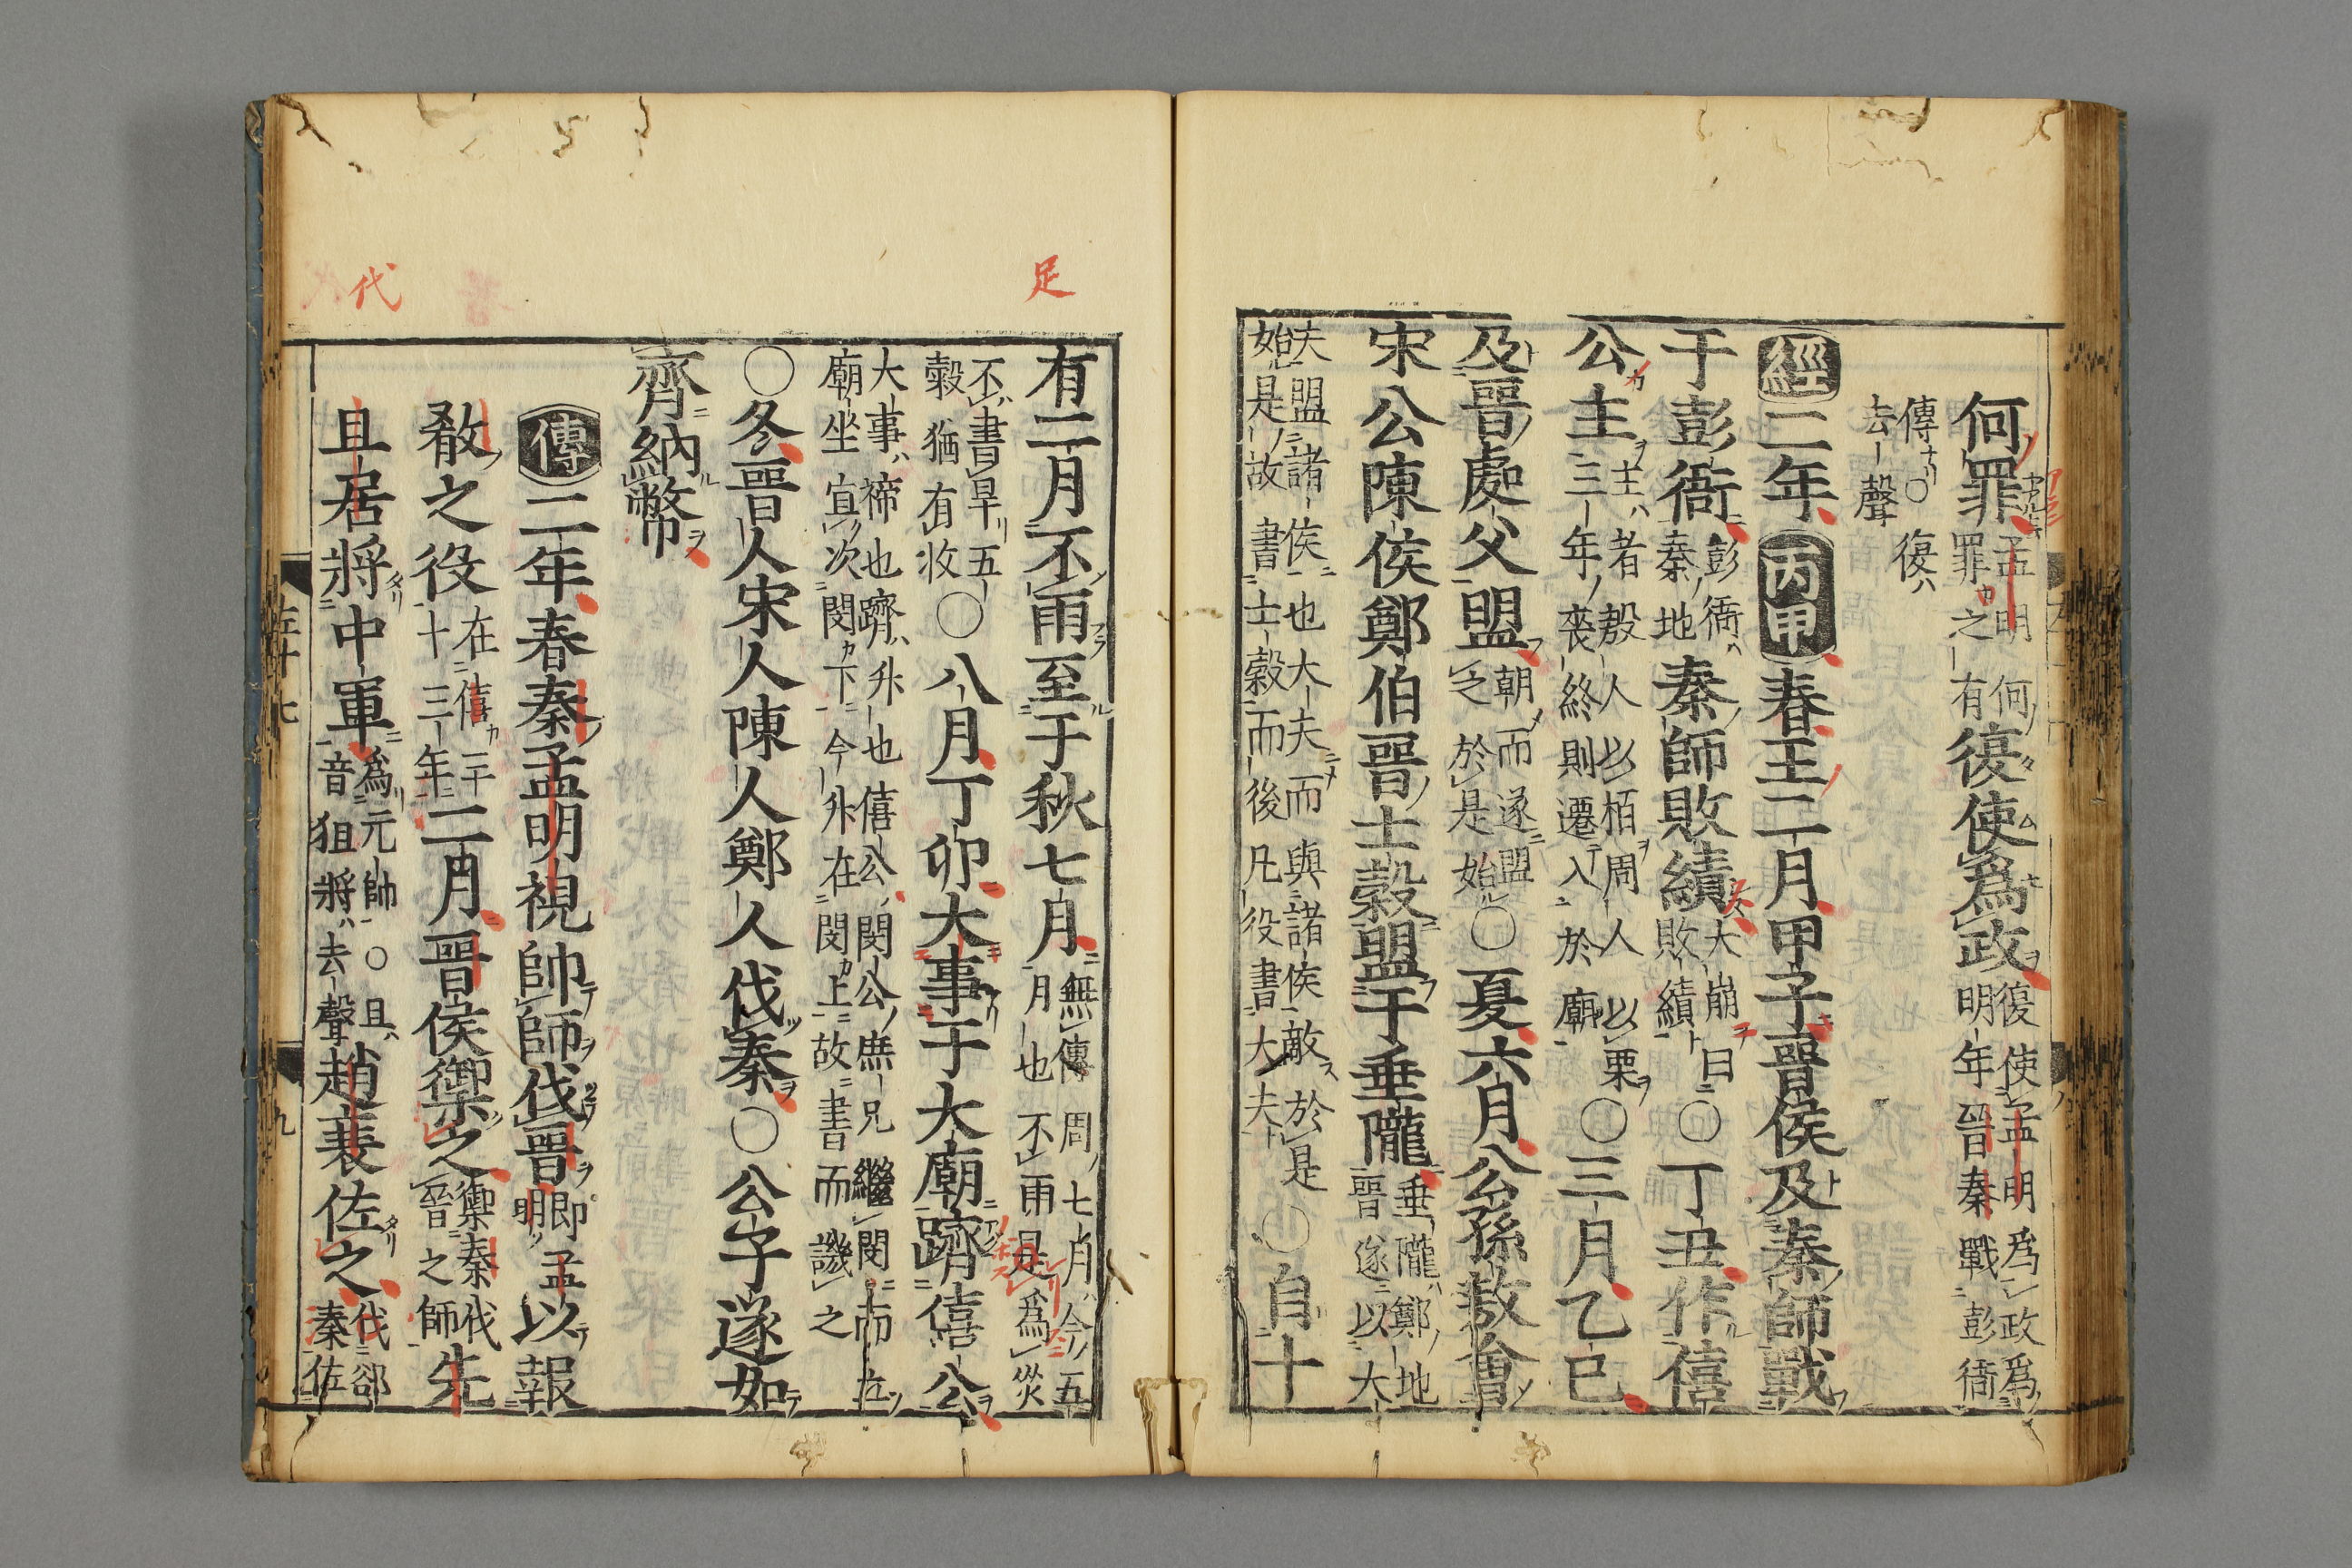 何罪孟明何罪之有復使爲政復使孟明爲政爲明年晉秦戰彭衙
傳○復去聲
經二年丙申春王二月甲子晉侯及秦師戰
于彭衙彭衙秦地秦師敗績大崩曰敗績○丁丑作僖
公主主者殷人以栢周人以栗三年喪終則遷入於廟○三月乙巳
及晉處父盟朝而遂盟之於是始○夏六月公孫敖會
宋公陳侯鄭伯晉士縠盟于垂隴垂隴鄭地晉遂以大
夫盟諸侯也大夫而與諸侯敵於是始是故書士縠而後凡役書大夫○自十
足
有二月不雨至于秋七月無傳周七月今五月也不雨是爲災
不書旱五穀猶有收○八月丁卯大事于大廟躋僖公
大事禘也躋升也僖公閔公庶兄繼閔而立廟坐宜次閔下今升在閔上故書而譏之
○冬晉人宋人陳人鄭人伐秦○公子遂如
齊納幣
傳二年春秦孟明視帥師伐晉卽孟明以報
殽之役在僖三十三年二月晉侯禦之禦秦伐晉之師先
代
且居將中軍爲元帥○且音狙將去聲趙衰佐之伐郤秦佐
左十七
九